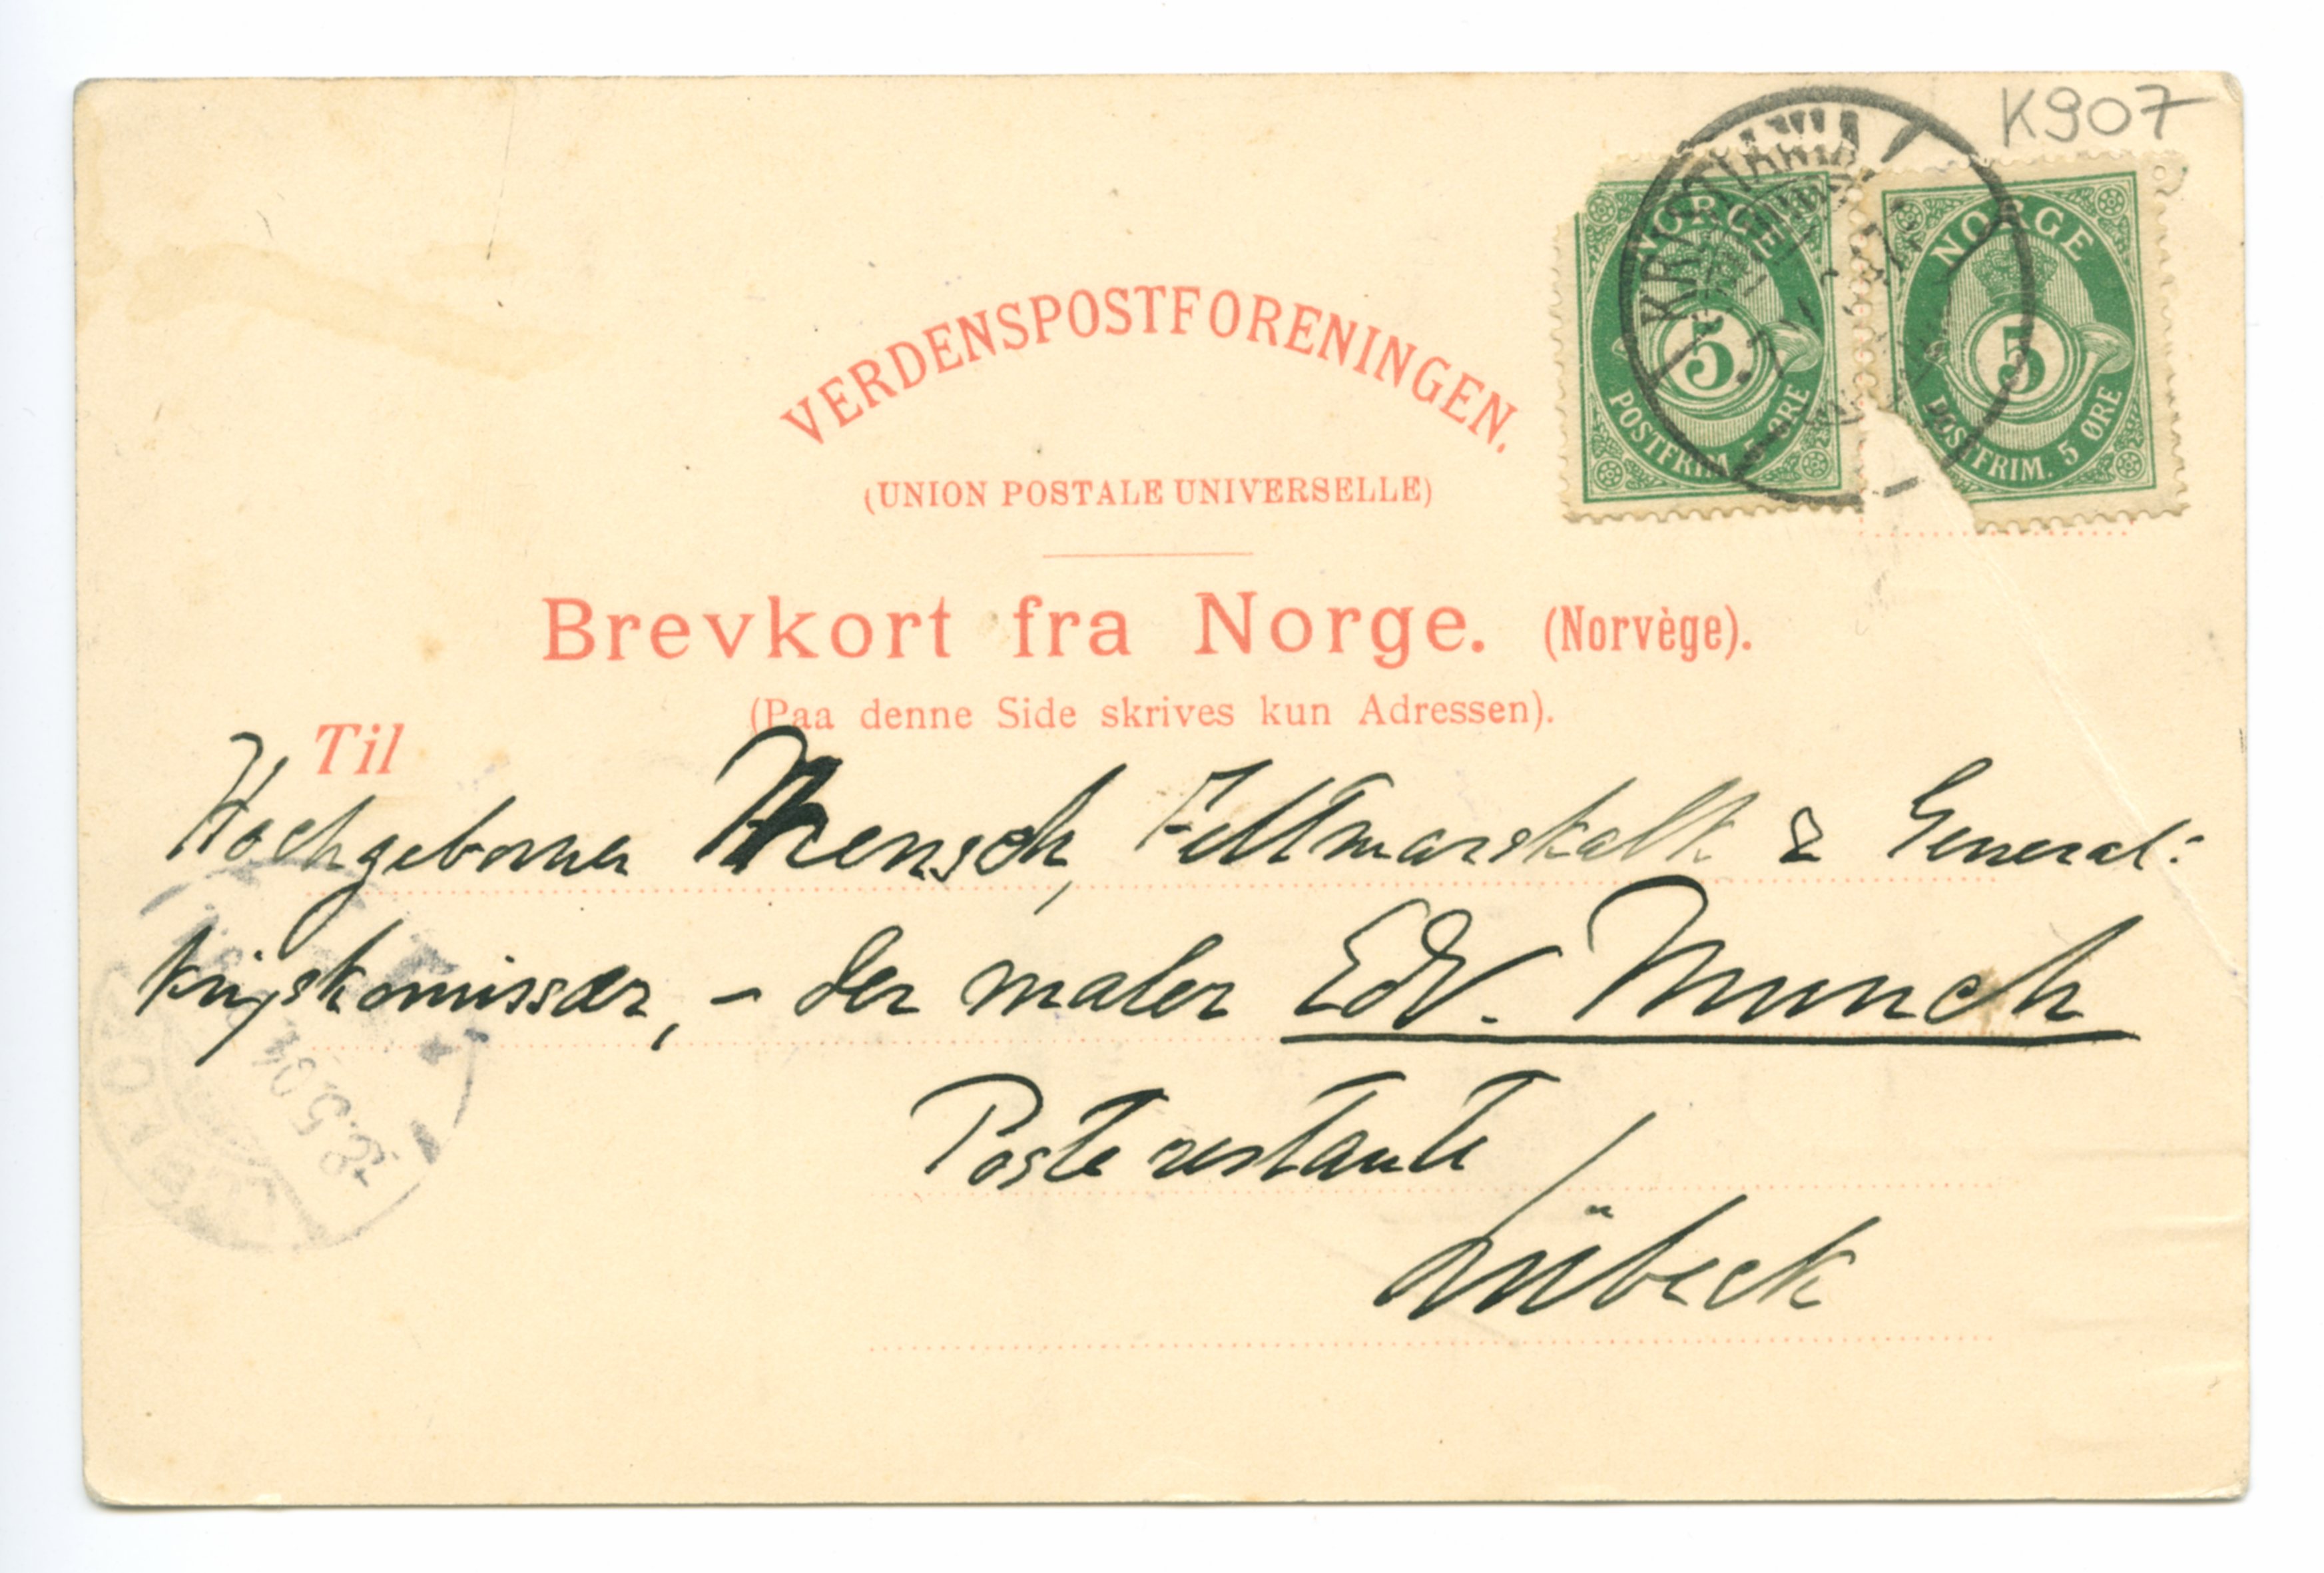 K907
KRISTIANIA
NORGE
5
POSTFRIM. 5 ØRE
NORGE
5
POSTFRIM. 5 ØRE
VERDENSPOSTFORENINGEN.
(UNION POSTALE UNIVERSELLE)
Brevkort fra Norge. (Norvège).
(Paa denne Side skrives kun Adressen).
Til
Hochgeborner Mensch, Feltmarskalk & General:
krigskomissær, – der maler Edv. Munch
Poste restante
Lübeck
8.5.04